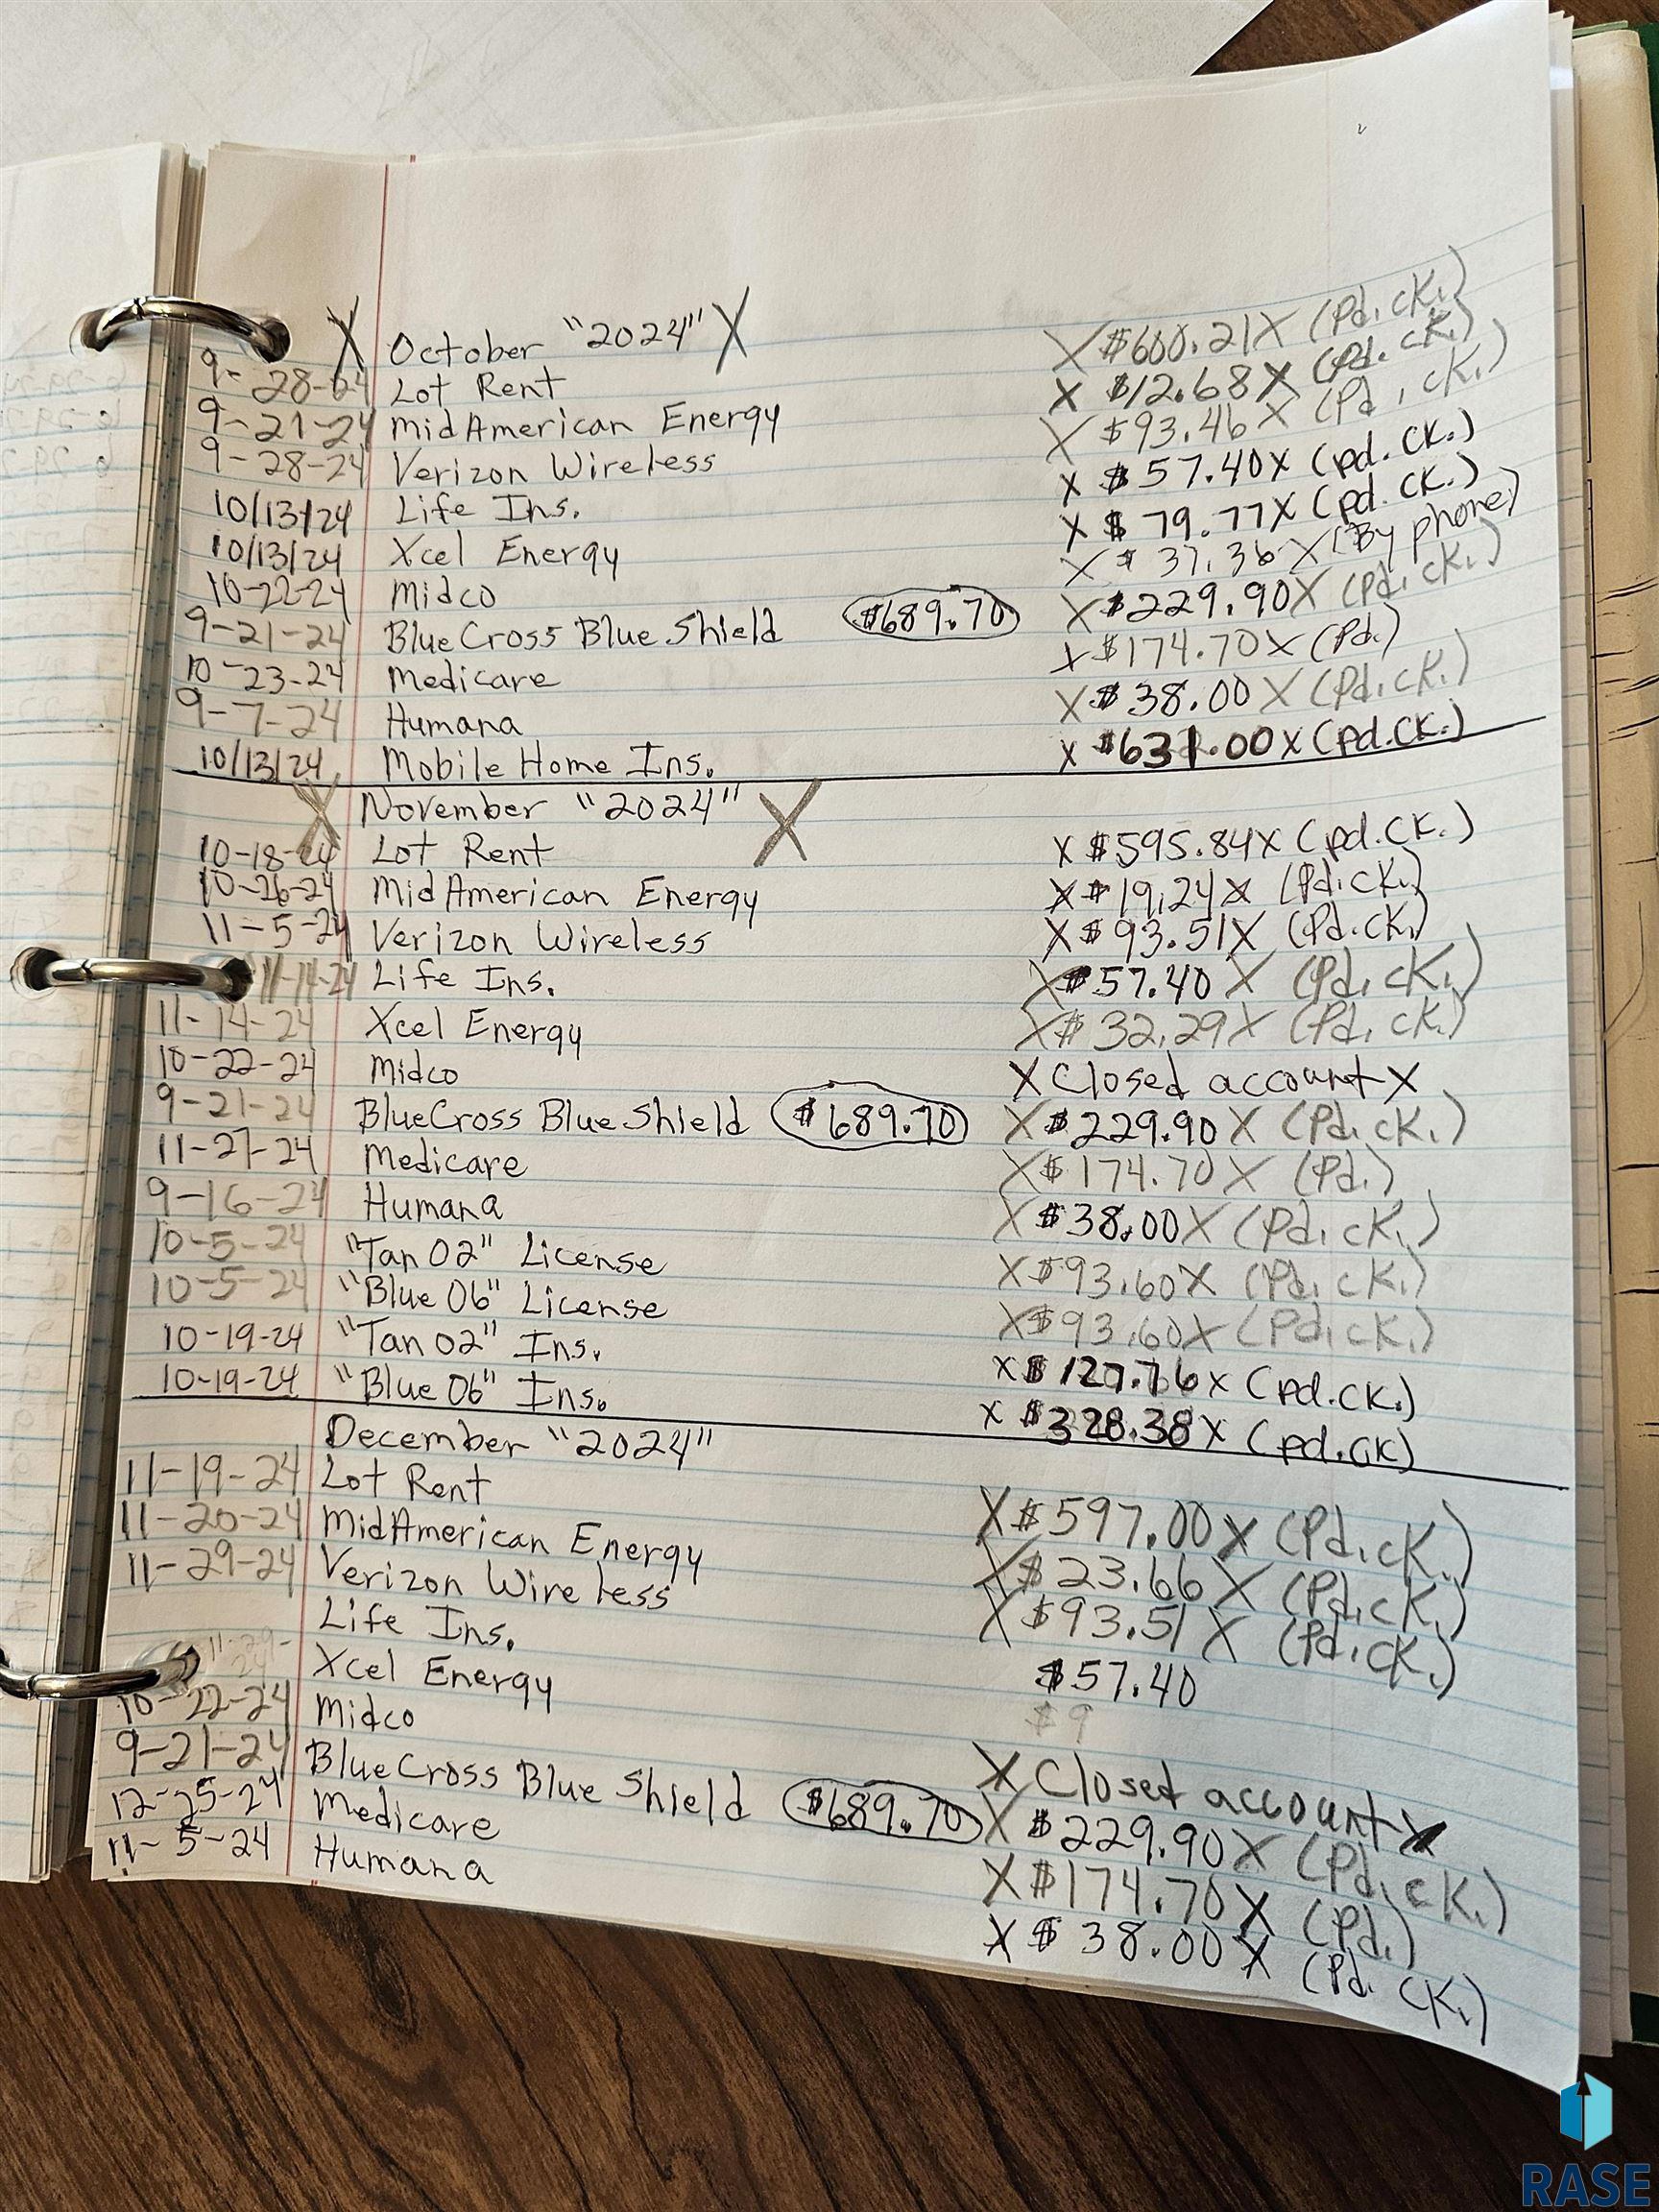 X October "2024" X
9-28-24 Lot Rent X $600.21 X (Pd. cK.)
9-21-24 MidAmerican Energy X $12.68 X (Pd. cK.)
9-28-24 Verizon Wireless X $93.46 X (Pd, cK.)
10/13/24 Life Ins. X $57.40 X (pd. CK.)
10/13/24 Xcel Energy X $79.77 X (pd. CK.)
10-22-24 Midco X $37.36 X (By phone)
9-21-24 BlueCross Blue Shield $689.70 X $229.90 X (Pd. cK.)
10-23-24 Medicare X $174.70 X (Pd.)
9-7-24 Humana X $38.00 X (Pd. cK.)
10/13/24 Mobile Home Ins. X $631.00 X (pd. CK.)
X November "2024" X
10-18-24 Lot Rent X $595.84 X (pd. CK.)
10-26-24 Mid American Energy X $19.24 X (Pd. cK.)
11-5-24 Verizon Wireless X $93.51 X (Pd. cK.)
11-14-24 Life Ins. X $57.40 X (Pd. cK.)
11-14-24 Xcel Energy X $32.29 X (Pd. cK.)
10-22-24 Midco X Closed account X
9-21-24 BlueCross Blue Shield $689.70 X $229.90 X (Pd. cK.)
11-27-24 Medicare X $174.70 X (Pd.)
9-16-24 Humana X $38.00 X (Pd. cK.)
10-5-24 "Tan 02" License X $93.60 X (Pd. cK.)
10-5-24 "Blue 06" License X $93.60 X (Pd. cK.)
10-19-24 "Tan 02" Ins. X $127.76 X (pd. CK.)
10-19-24 "Blue 06" Ins. X $328.38 X (pd. CK)
December "2024"
11-19-24 Lot Rent X $597.00 X (Pd. cK.)
11-20-24 MidAmerican Energy X $23.66 X (Pd. cK.)
11-29-24 Verizon Wireless X $93.51 X (Pd. cK.)
Life Ins. $57.40
11-29-24 Xcel Energy $9
10-22-24 Midco X Closed account X
9-21-24 BlueCross Blue Shield $689.70 X $229.90 X (Pd. cK.)
12-25-24 Medicare X $174.70 X (Pd.)
11-5-24 Humana X $38.00 X (Pd. CK.)
RASE